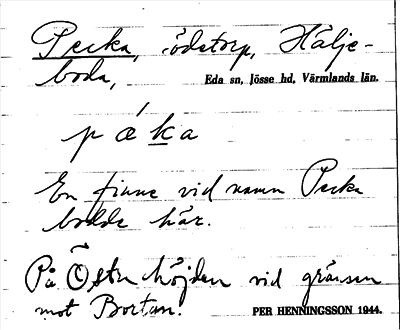 Pecka, ödetorp, Hälje-
boda, Eda sn, Jösse hd, Värmlands län.
pæ´ka
En finne vid namn Pecka
bodde här.
På Östra höjden vid gränsen
mot Bortan. PER HENNINGSSON 1944.